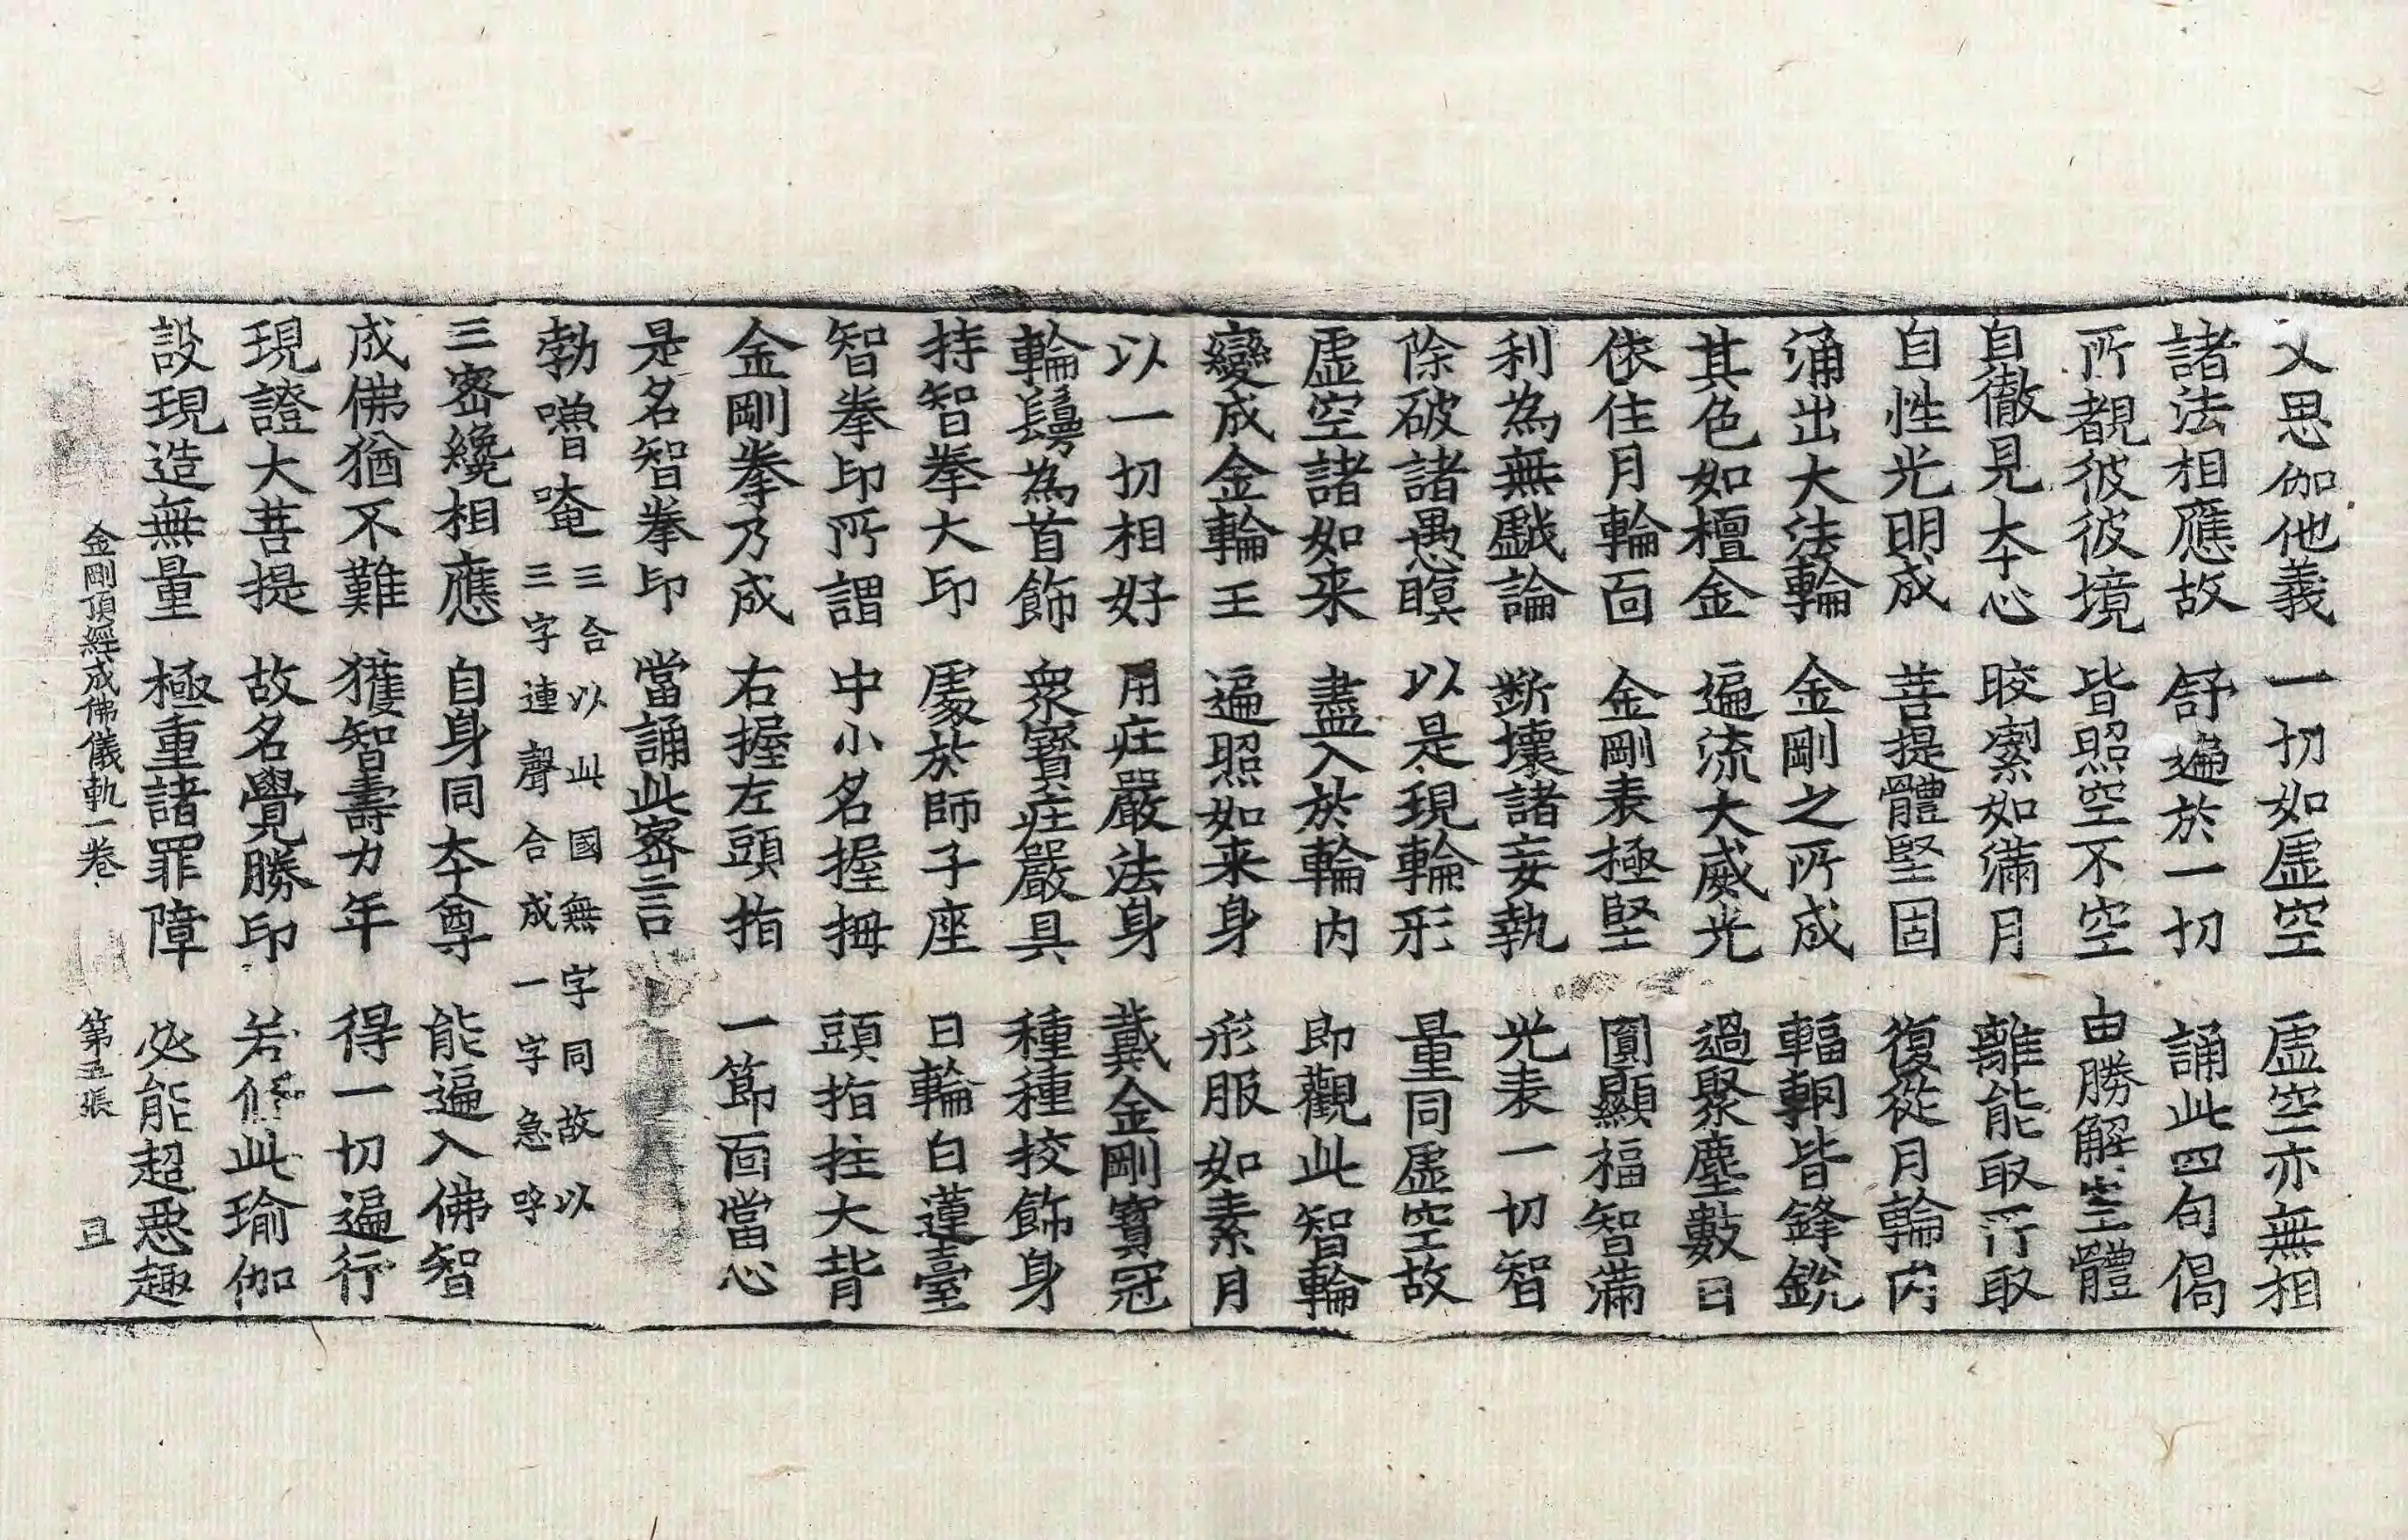 又思伽他義　一切如虛空　虛空亦無相
諸法相應故　舒遍於一切　誦此四句偈
所覩彼彼境　皆照空不空　由勝解空體
自徹見夲心　晈潔如滿月　離能取所取
自性光明成　菩提體堅固　復從月輪內
涌出大法輪　金剛之所成　輻輞皆鋒銳
其色如檀金　遍流大威光　過聚塵數日
依住月輪面　金剛表極堅　圓顯福智滿
利為無戲論　斷壞諸妄執　光表一切智
除破諸愚瞑　以是現輪形　量同虛空故
虛空諸如来　盡入於輪內　即觀此智輪
變成金輪王　遍照如来身　形服如素月
以一切相好　用莊嚴法身　戴金剛寶冠
輪鬘為首飾　衆寶莊嚴具　種種挍飾身
持智拳大印　處於師子座　日輪白蓮臺
智拳印所謂　中小名握拇　頭指拄大背
金剛拳乃成　右握左頭指　一節面當心
是名智拳印　當誦此密言
勃嚕唵三合以此國無字同故以
三字連聲合成一字急呼
三密纔相應　自身同夲尊　能遍入佛智
成佛猶不難　獲智壽力年　得一切遍行
現證大菩提　故名覺勝印　若修此瑜伽
設現造無量　極重諸罪障　必能超惡趣
金剛頂經成佛儀軌一卷　第五張